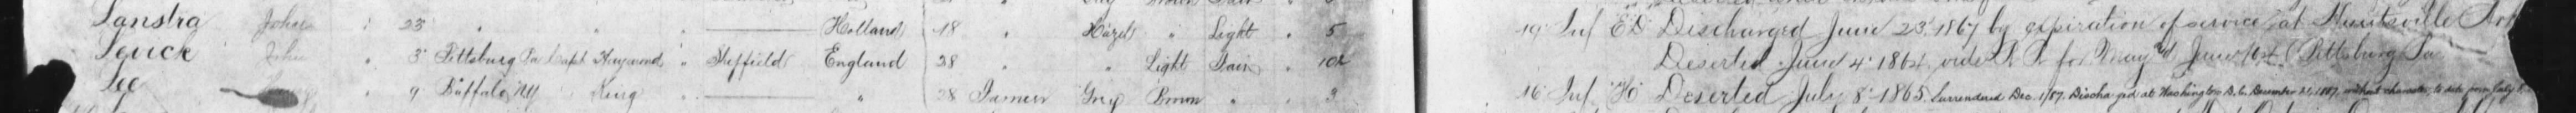 Lanstra John " 23 " " Holland 18 " Hazel " Light " 5 19 Inf ED Discharged June 23 1867 by expiration of service at Huntsville
Leuck John " 3 Pittsburg Pa Capt " Sheffield England 28 " " Light Fair " 102 Deserted June 4 1864, vide R R for May & June 1864 (Pittsburg Pa
Lee " 9 Buffalo NY King " " 28 Grey Brown " " 3 16 Inf Deserted July 8 1865. Surrendered Dec. 1/87. Discharged at Washington D.C. December 21, 1887, without character, to date from July 8